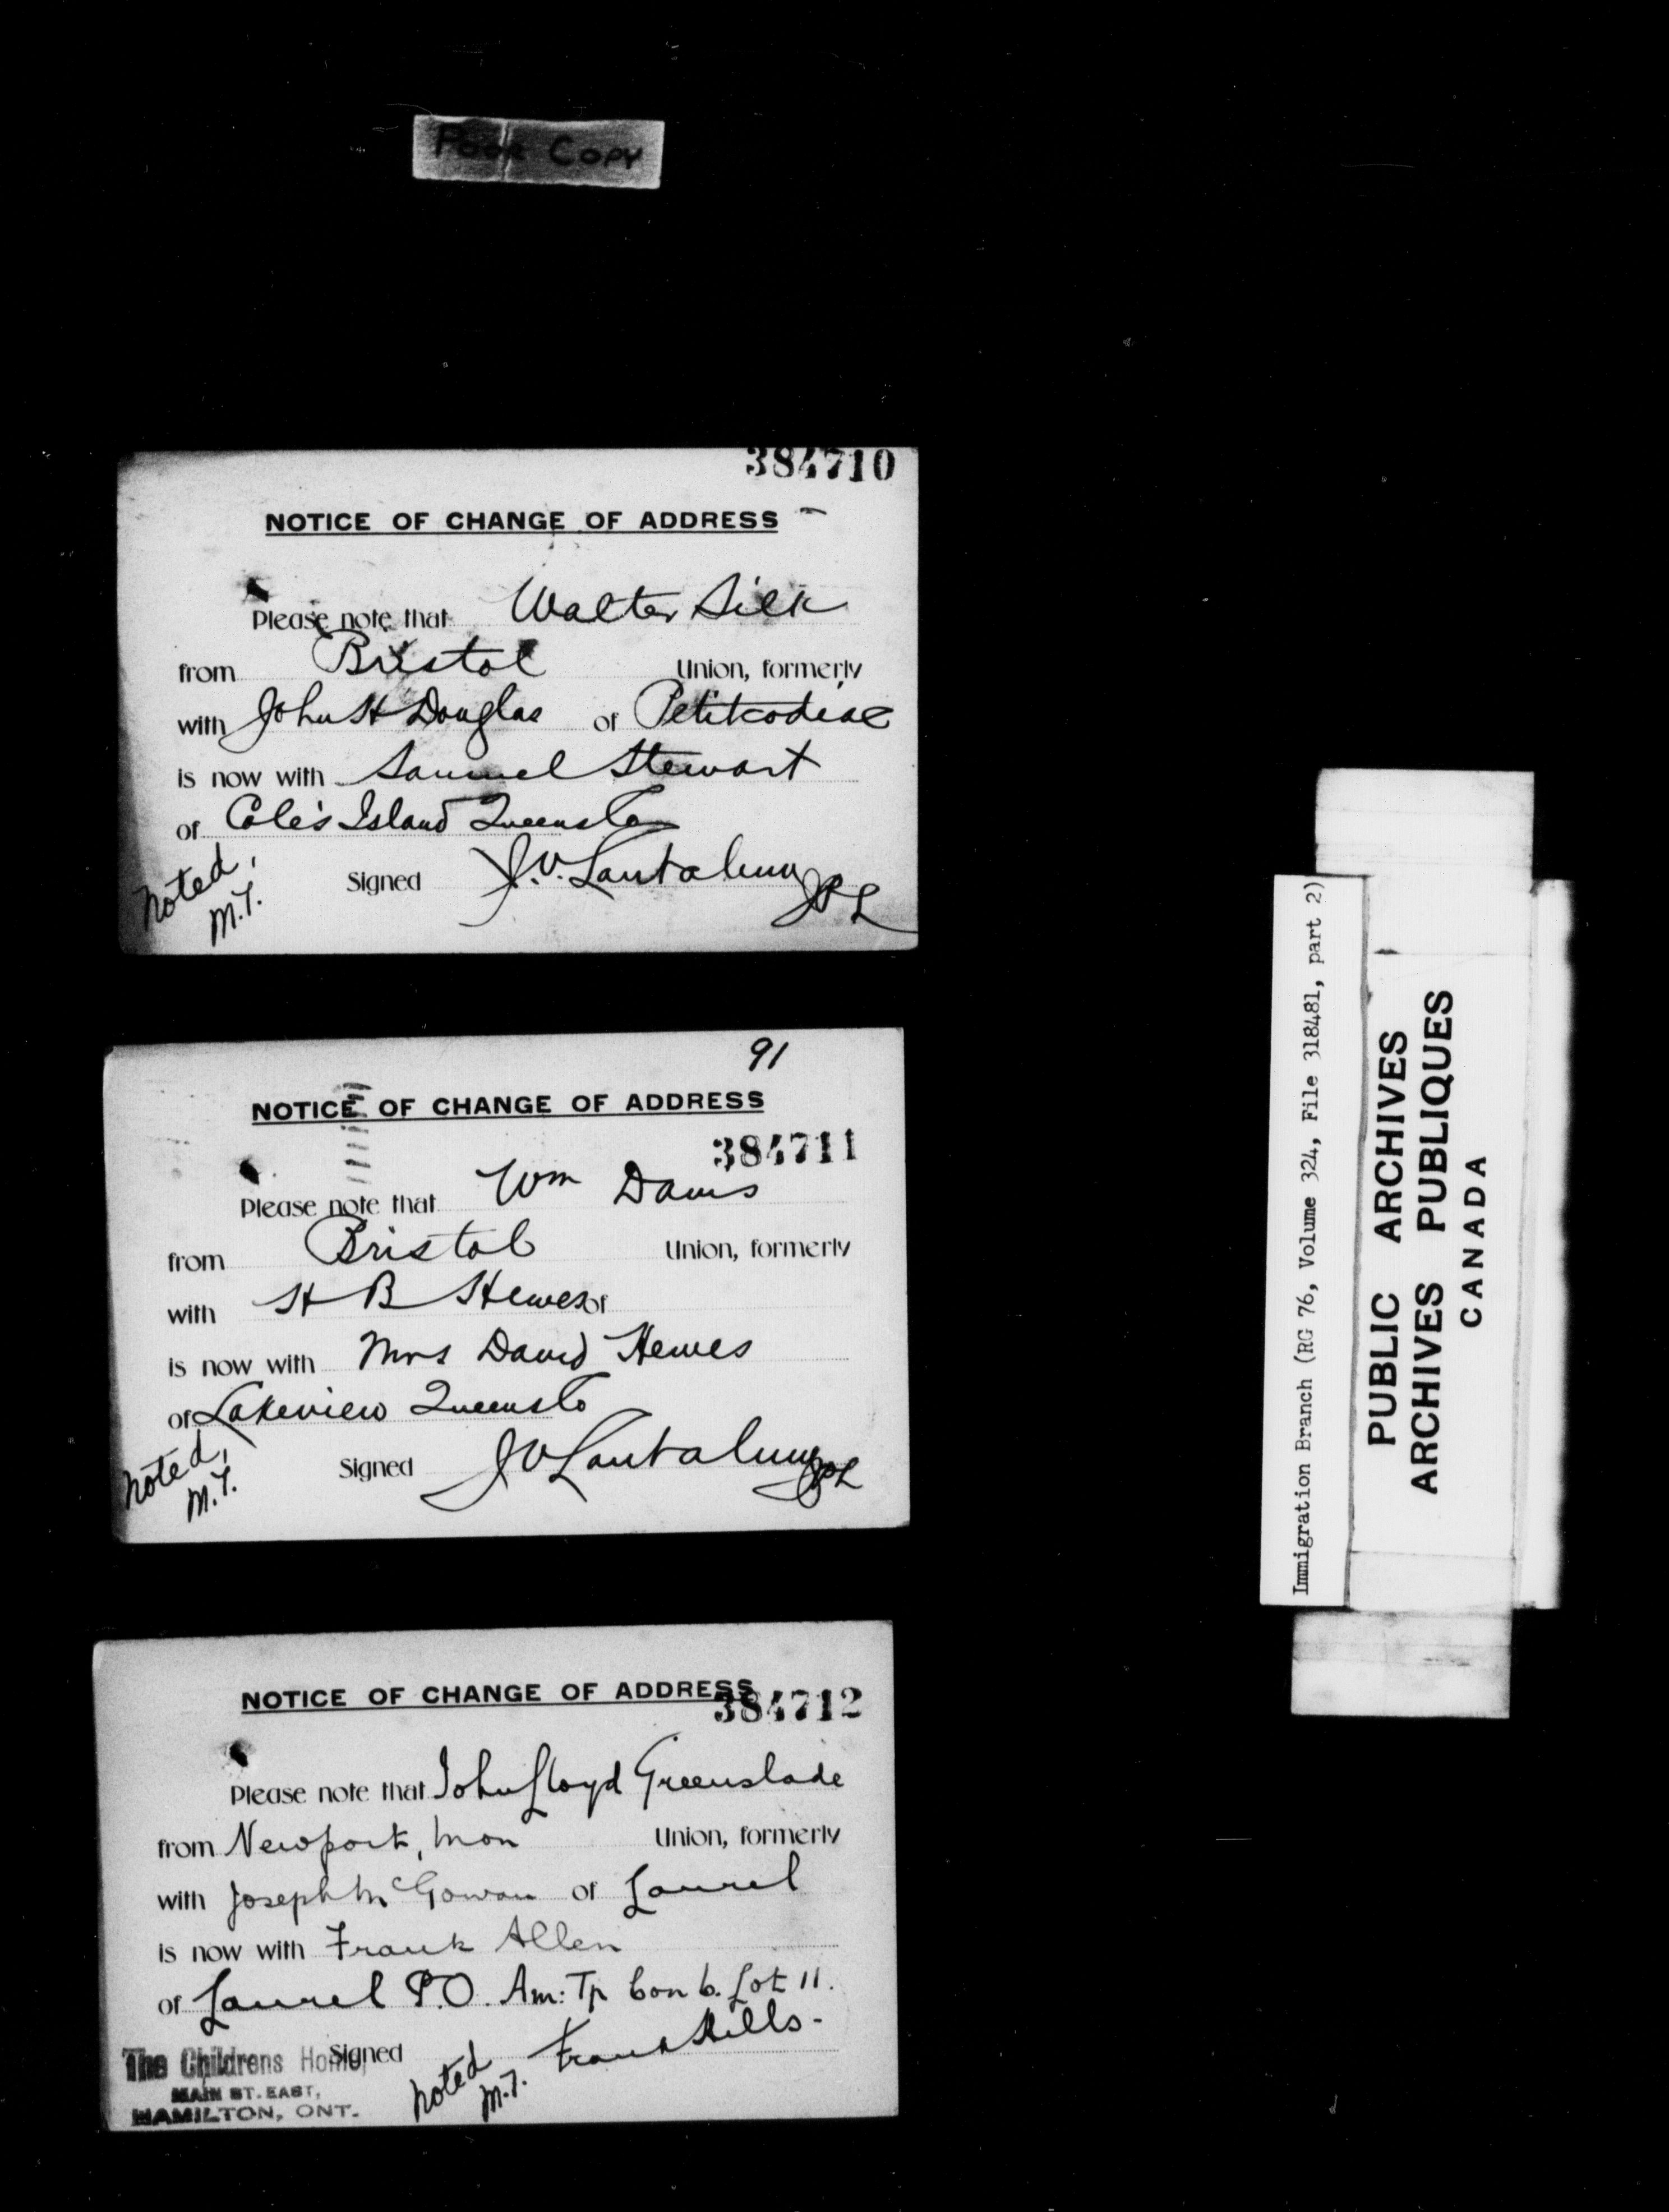 Poor Copy
384710
NOTICE OF CHANGE OF ADDRESS
Please note that Walter Silk
from Bristol Union, formerly
with John H Douglas of Petitcodiac
is now with Samuel Stewart
of Cole's Island Queens Co
Signed J.V. Lantalum
JPL
Noted,
M.T.
91
NOTICE OF CHANGE OF ADDRESS
384711
Please note that Wm Davis
from Bristol Union, formerly
with H B Hewes of
is now with Mrs David Hewes
of Lakeview Queens Co
Signed J V Lantalum
JPL
Noted,
M.T.
NOTICE OF CHANGE OF ADDRESS
384712
Please note that John Lloyd Greenslade
from Newport, Mon Union, formerly
with Joseph McGowan of Laurel
is now with Frank Allen
of Laurel P.O. Am: Tp Con 6. Lot 11.
Signed Frank Hills.
The Childrens Home,
MAIN ST. EAST,
HAMILTON, ONT.
Noted
M.T.
Immigration Branch (RG 76, Volume 324, File 318481, part 2)
PUBLIC ARCHIVES
ARCHIVES PUBLIQUES
CANADA